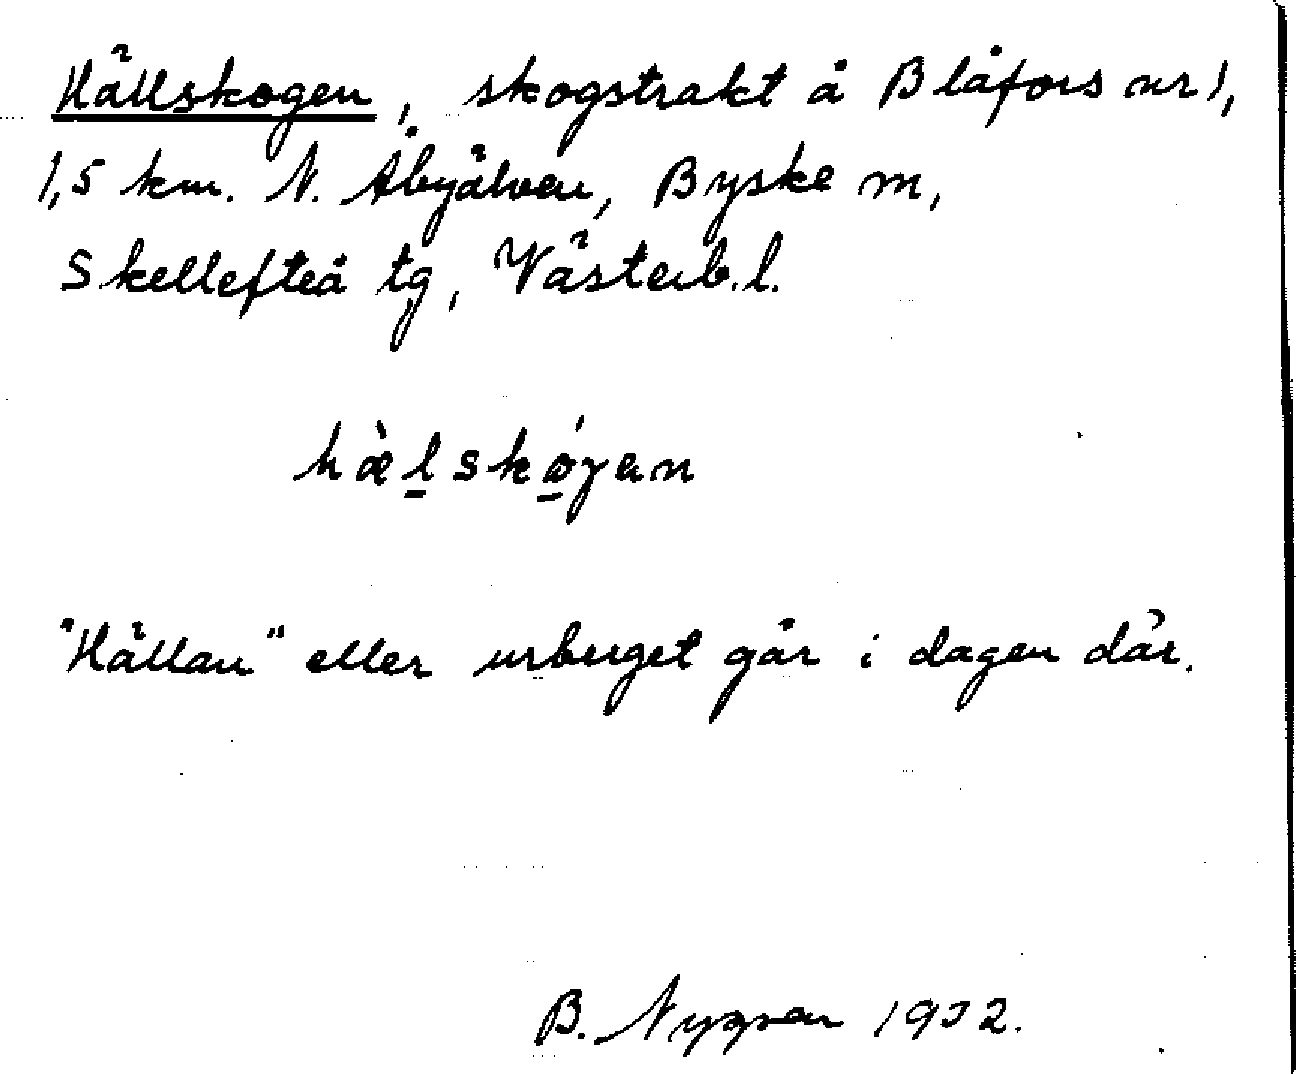 Hällskogen, skogstrakt å Blåfors nr 1,
1,5 km. N. Åbyälven, Byske m,
Skellefteå tg, Västerb. l.
hæ̀l̠skó̠γen
"Hällan" eller urberget går i dagen där.
B. Nygren 1932.